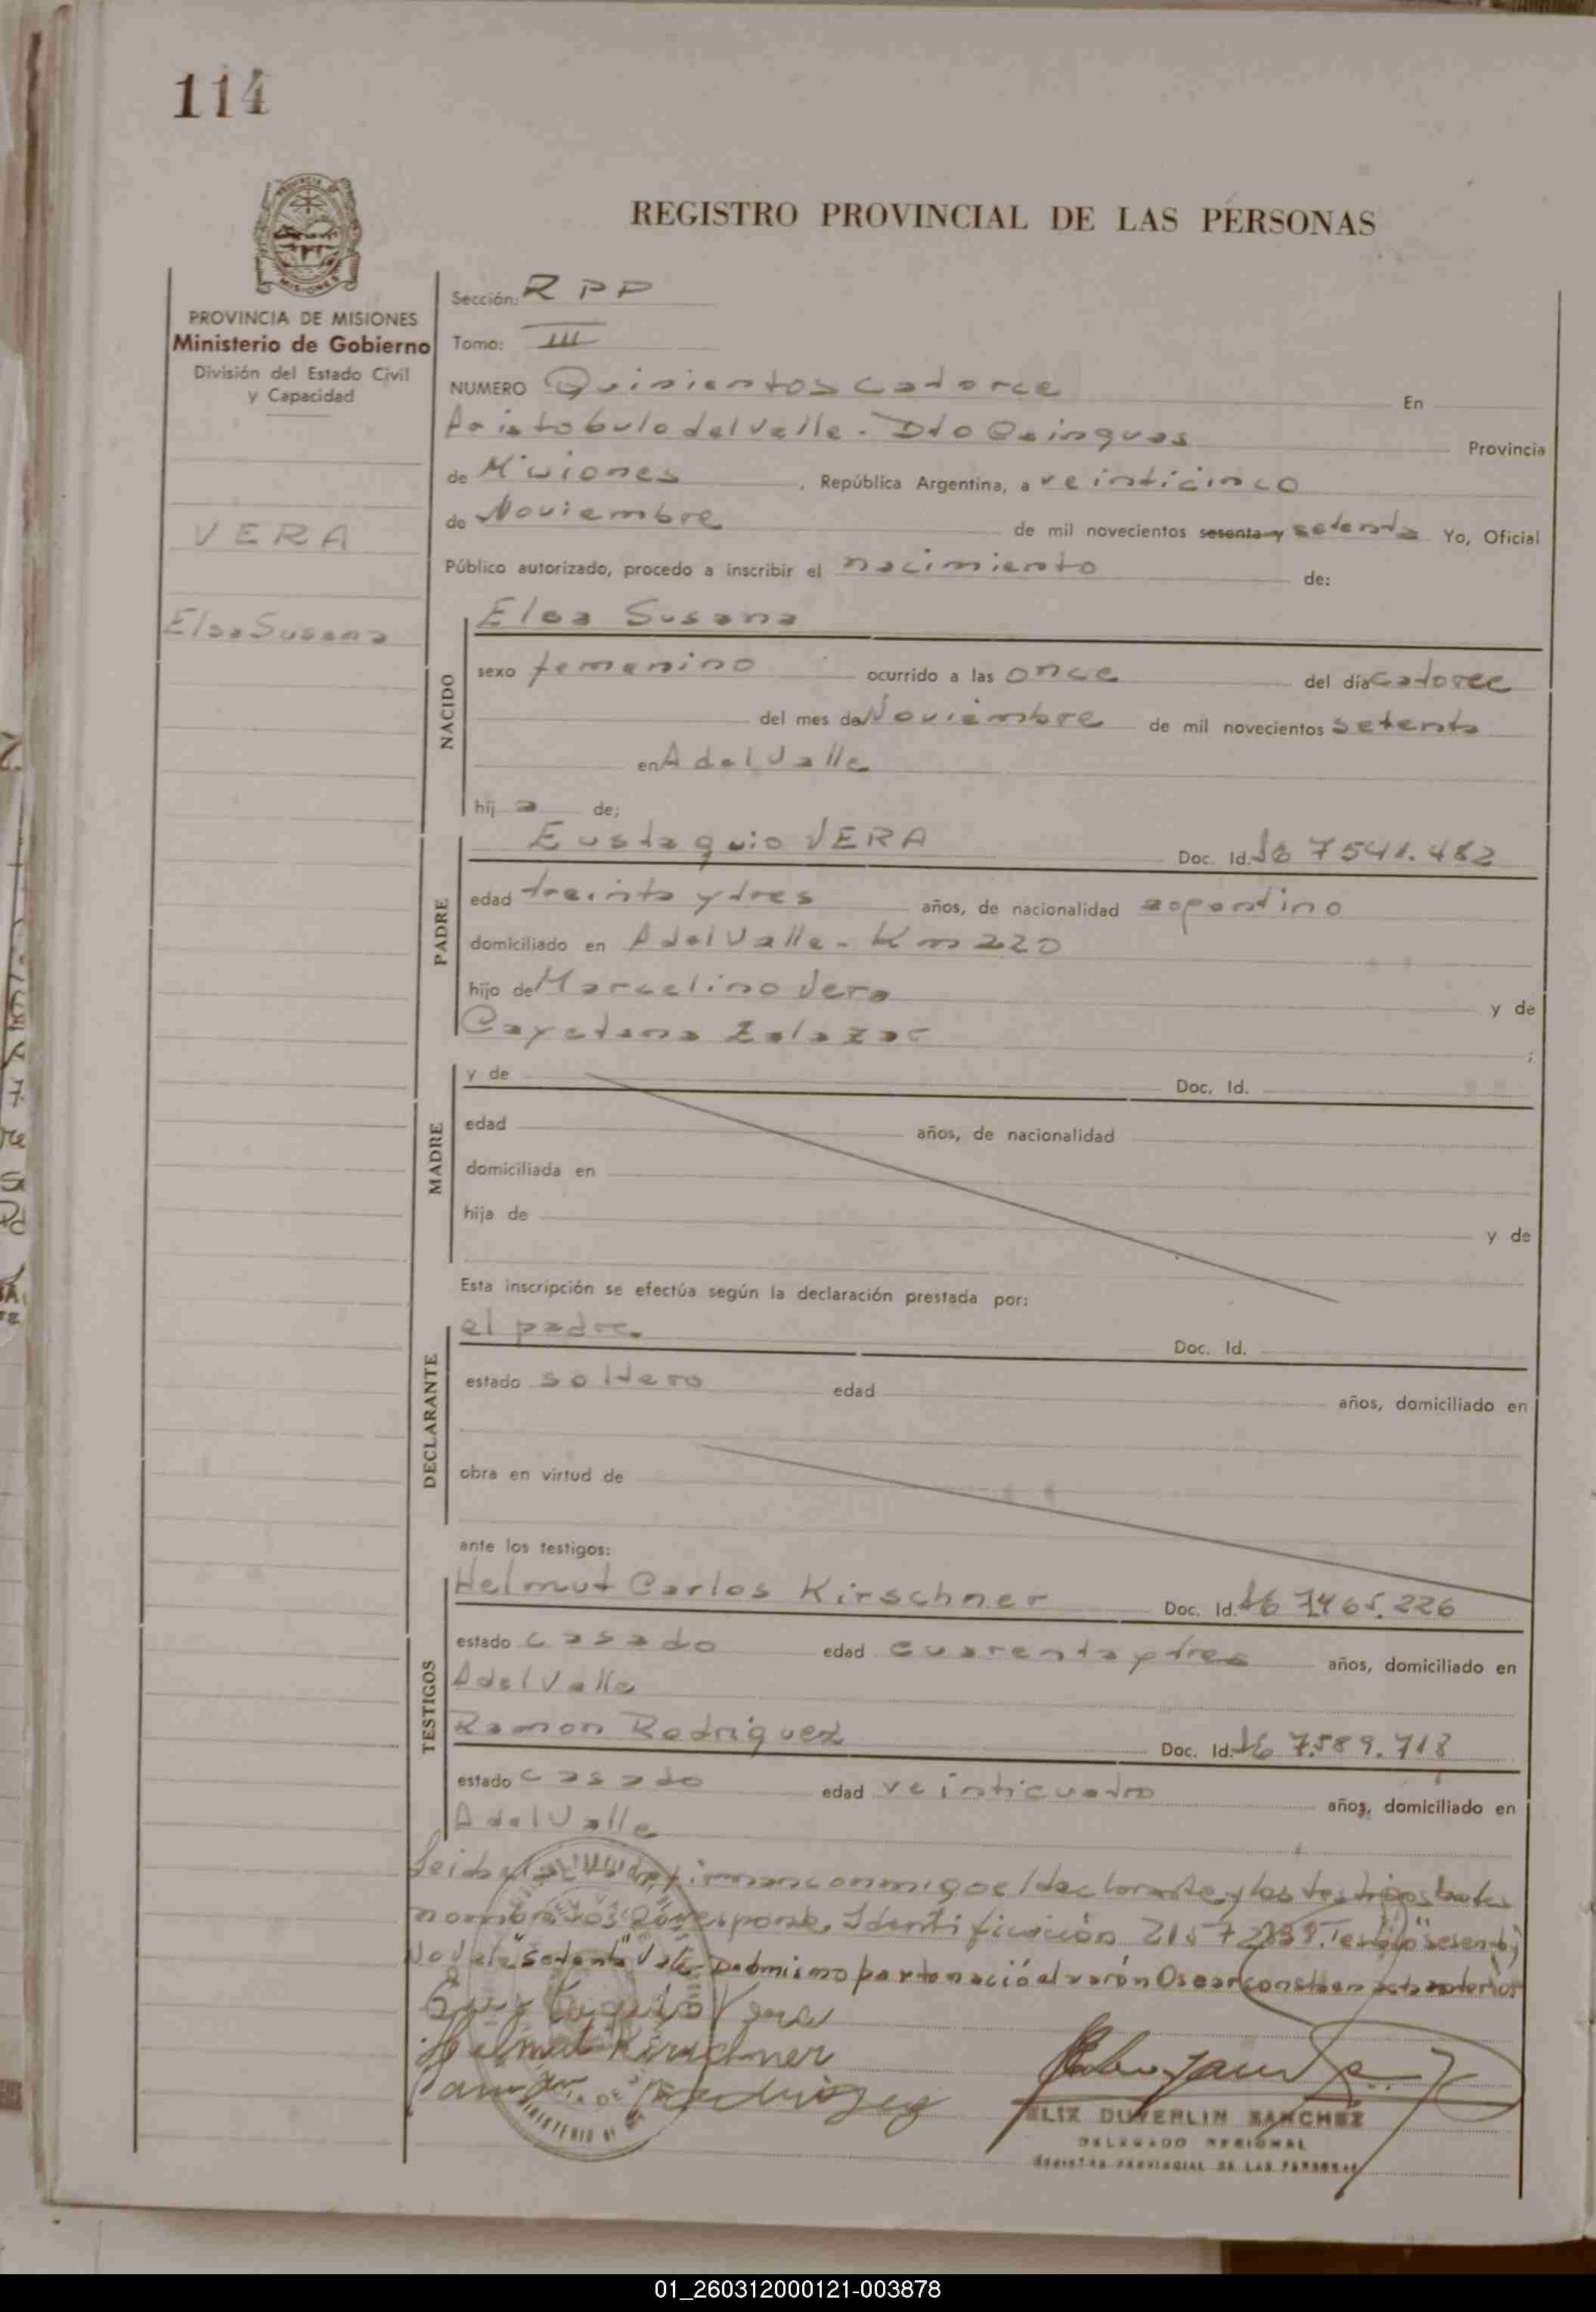 114
REGISTRO PROVINCIAL DE LAS PERSONAS
PROVINCIA DE MISIONES
Ministerio de Gobierno
División del Estado Civil
y Capacidad
VERA
Elsa Susana
Sección: RPP
Tomo: III
NUMERO Quinientos catorce En
Aristobulo del Valle - Dto Cainguas Provincia
de Misiones, República Argentina, a veinticinco
de Noviembre de mil novecientos sesenta y setenta Yo, Oficial
Público autorizado, procedo a inscribir el nacimiento de:
NACIDO
Elsa Susana
sexo femenino ocurrido a las once del día catorce
del mes de Noviembre de mil novecientos setenta
en A del Valle
hij a de;
PADRE
Eustaquio VERA Doc. Id. 7541.482
edad treinta y tres años, de nacionalidad argentino
domiciliado en A del Valle - Km 220
hijo de Marcelino Vera y de
Cayetana Zalazar ;
MADRE
y de Doc. Id.
edad años, de nacionalidad
domiciliada en
hija de y de
Esta inscripción se efectúa según la declaración prestada por:
DECLARANTE
el padre. Doc. Id.
estado soltero edad años, domiciliado en
obra en virtud de
ante los testigos:
TESTIGOS
Helmut Carlos Kirschner Doc. Id. 7465.226
estado casado edad cuarenta y tres años, domiciliado en
A del Valle
Ramon Rodriguez Doc. Id. 7.589.718
estado casado edad veinticuatro años, domiciliado en
A del Valle
Leida el acta, firman conmigo el declarante y los testigos
Identificación Testado "sesenta y"
No vale "setenta" Vale Del mismo parto nació el varón Oscar consta en acta anterior
Eustaquio Vera
Helmut Kirschner
Ramon Rodriguez
FELIX DUVERLIN SANCHEZ
DELEGADO REGIONAL
REGISTRO PROVINCIAL DE LAS PERSONAS
01_260312000121-003878